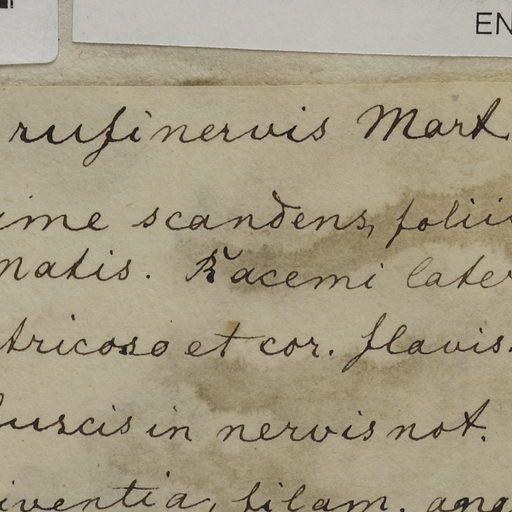 EN
rufinervis Mart
ime scandens, foliis
natis. Racemi later
tricoso et cor. flavis.
fuscis in nervis not.
iventia, filam. ang